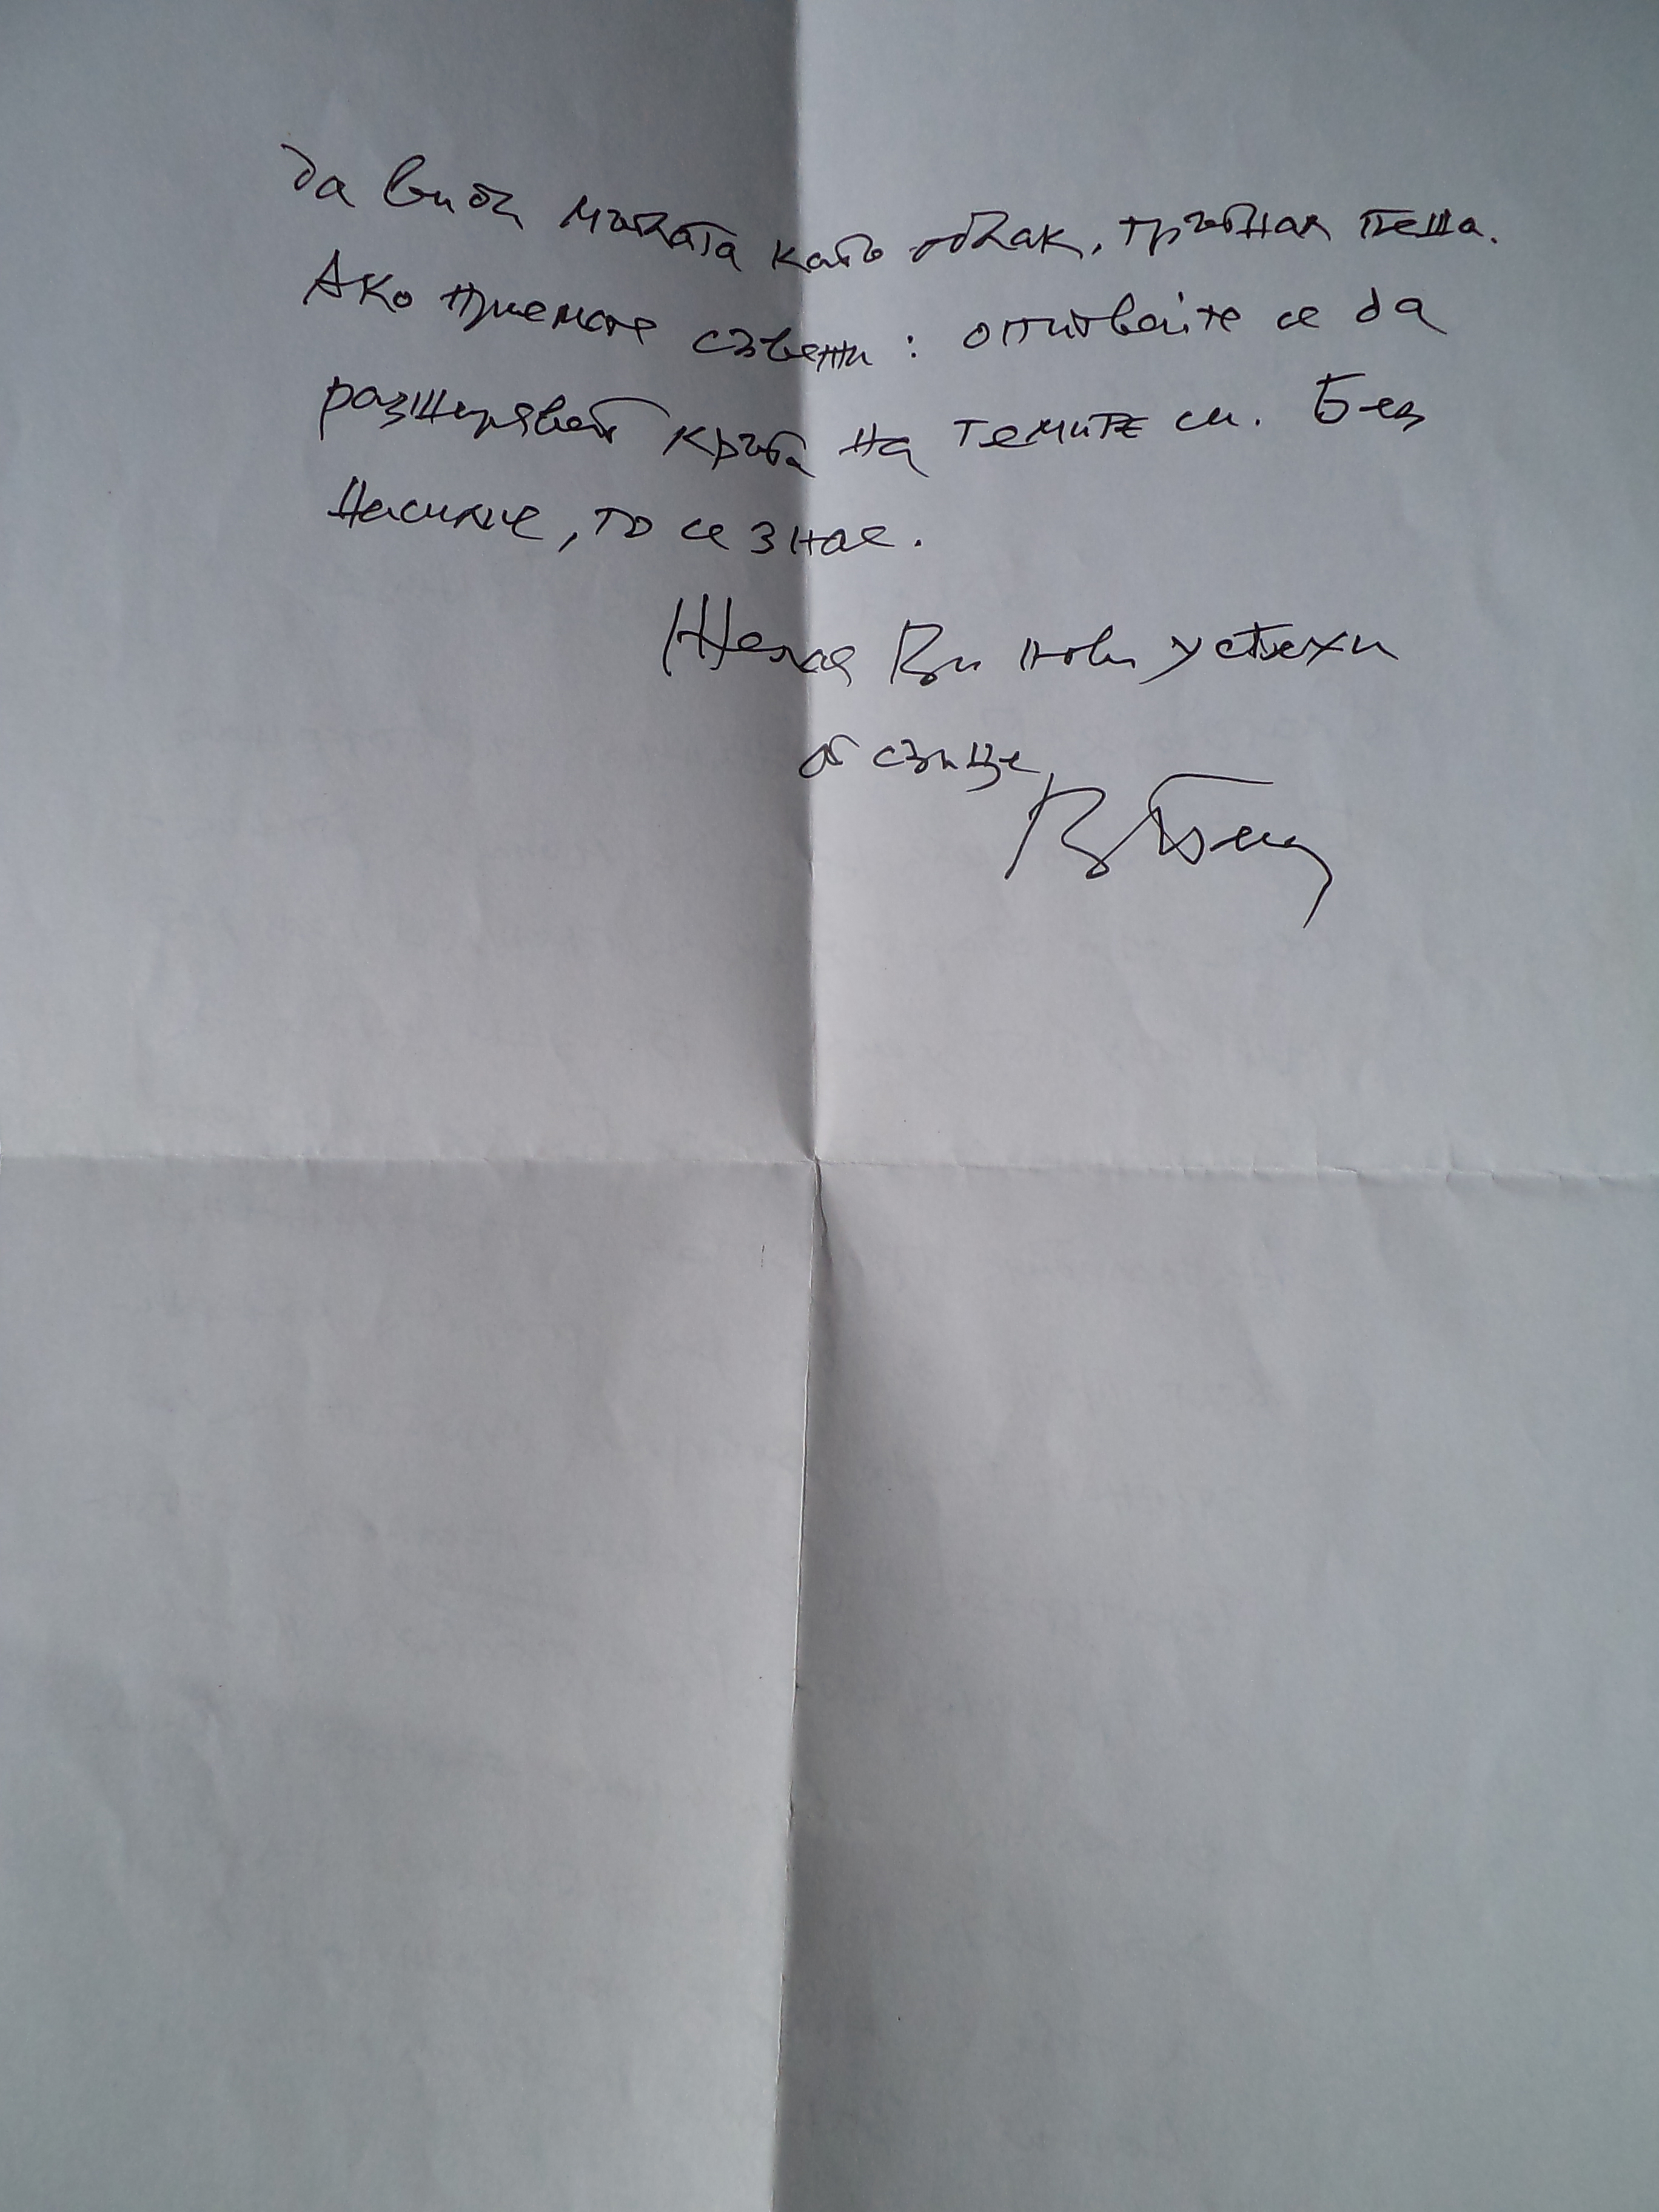 да видя мъката като облак, тръгнал пеша.
Ако приемате съвети: опитвайте се да
разширявате кръга на темите си. Без
насилие, то се знае.
Желая Ви нови успехи
от сърце,